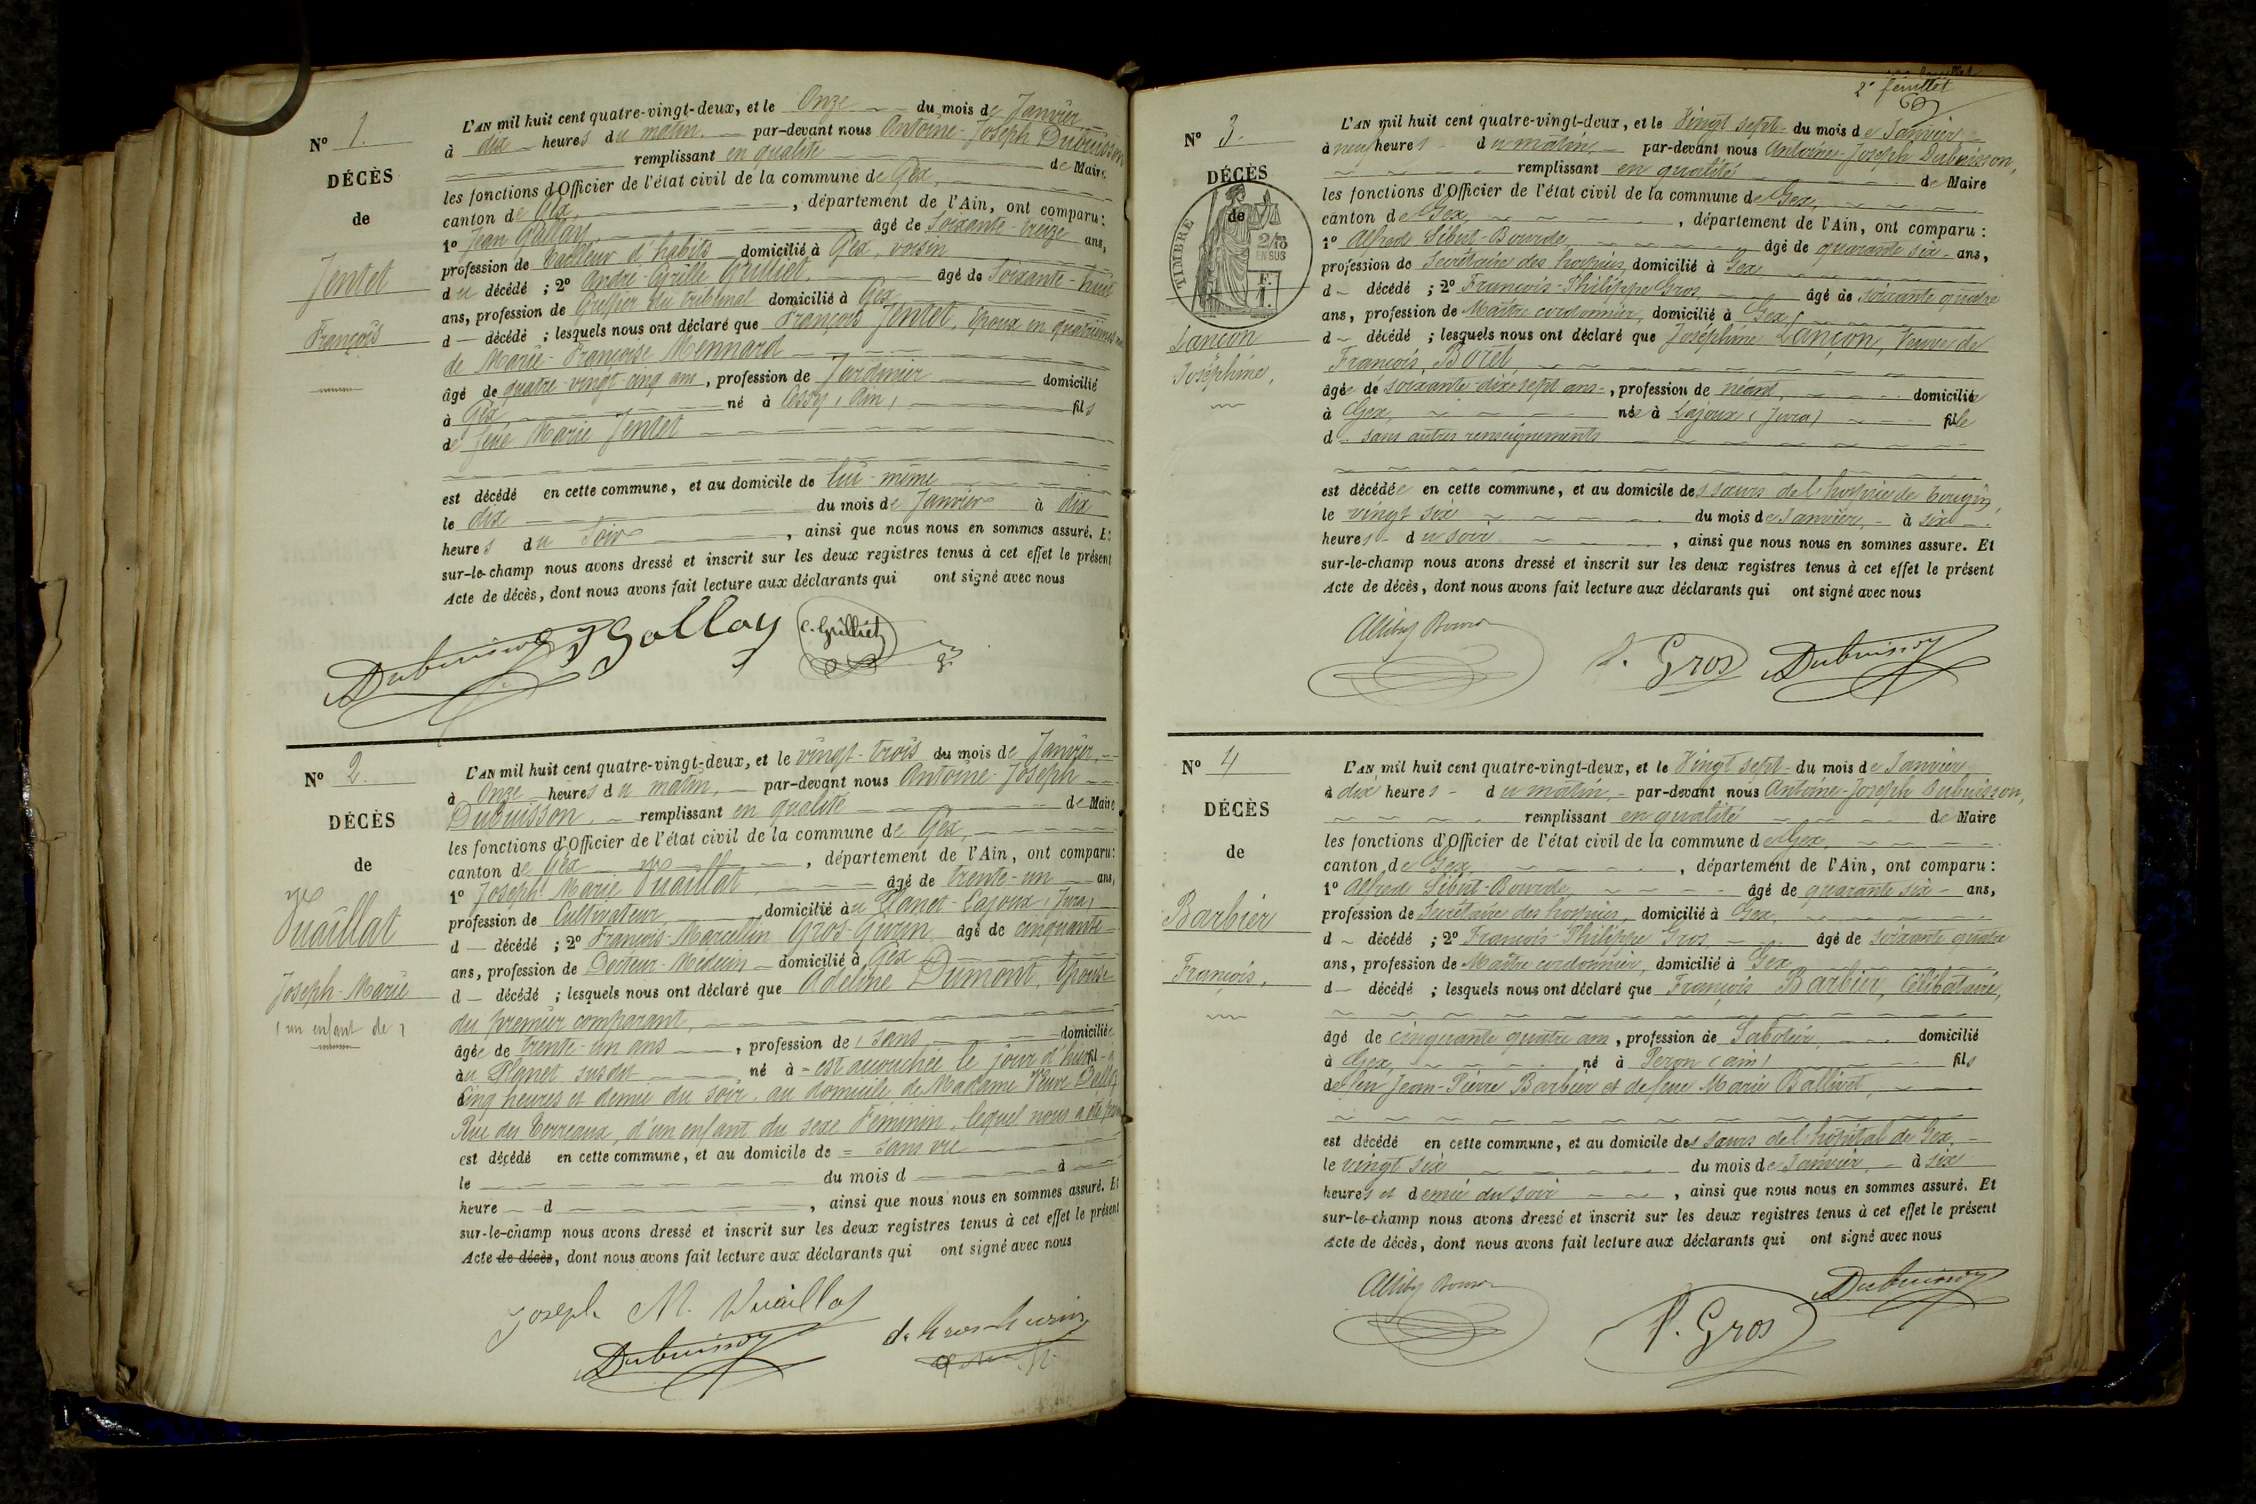 N° 1.
DÉCÈS
de
Jentet
François
L'AN mil huit cent quatre-vingt-deux, et le Onze du mois de Janvier
à dix heures du matin. par-devant nous Antoine-Joseph Dubuisson
remplissant en qualité de Maire
les fonctions d'Officier de l'état civil de la commune de Gex,
canton de Gex, , département de l'Ain, ont comparu:
1° Jean Gallay âgé de Soixante-treize ans,
profession de tailleur d'habits domicilié à Gex, voisin
du décédé ; 2° André-Cyrille Grilliet âgé de Soixante-huit
ans, profession de Greffier du tribunal domicilié à Gex
d décédé ; lesquels nous ont déclaré que François Jentet, époux en quatrièmes
de Marie-Françoise Mennard
âgé de quatre-vingt-cinq ans, profession de Jardinier domicilié
à Gex né à Cessy (Ain) fils
de feue Marie Jentet
est décédé en cette commune, et au domicile de lui-même
le dix du mois de Janvier à dix
heures du Soir , ainsi que nous nous en sommes assuré. Et
sur-le-champ nous avons dressé et inscrit sur les deux registres tenus à cet effet le présent
Acte de décès, dont nous avons fait lecture aux déclarants qui ont signé avec nous
Dubuisson J Gallay C. Grilliet
N° 2.
DÉCÈS
de
Vuaillat
Joseph-Marie
(un enfant de)
L'AN mil huit cent quatre-vingt-deux, et le vingt-trois du mois de Janvier,
à Onze heures du matin, par-devant nous Antoine-Joseph
Dubuisson. remplissant en qualité de Maire
les fonctions d'Officier de l'état civil de la commune de Gex,
canton de Gex , département de l'Ain, ont comparu:
1° Joseph Marie Vuaillat, âgé de trente-un ans,
profession de Cultivateur domicilié au Planet-Lajoux (Jura)
d décédé ; 2° François-Marcellin Gros-Gurin âgé de cinquante
ans, profession de Docteur-Médecin domicilié à Gex
d décédé ; lesquels nous ont déclaré que Adeline Dumont, épouse
du premier comparant,
âgée de trente-un ans , profession de sans domiciliée
au Planet susdit né à = est accouchée le jour d'hier fil à
Cinq heures et demie du soir, au domicile de Madame Veuve Dall
Rue des Terreaux, d'un enfant du sexe Féminin, lequel nous a été
est décédé en cette commune, et au domicile de = sans vie
le du mois d à
heure d , ainsi que nous nous en sommes assuré. Et
sur-le-champ nous avons dressé et inscrit sur les deux registres tenus à cet effet le présent
Acte de décès, dont nous avons fait lecture aux déclarants qui ont signé avec nous
Joseph M. Vuaillat
Dubuisson
2e feuillet
N° 3.
DÉCÈS
de
TIMBRE
2/10 EN SUS
Lançon
Joséphine,
L'AN mil huit cent quatre-vingt-deux, et le Vingt sept du mois de Janvier
à neuf heures du matin par-devant nous Antoine-Joseph Dubuisson,
remplissant en qualité de Maire
les fonctions d'Officier de l'état civil de la commune de Gex,
canton de Gex, , département de l'Ain, ont comparu:
1° Alfred Sibut-Bourde, âgé de quarante six ans,
profession de Secrétaire des hospices, domicilié à Gex,
d décédé ; 2° François-Philippe Gros, âgé de soixante quatre
ans, profession de Maître cordonnier, domicilié à Gex,
d décédé ; lesquels nous ont déclaré que Joséphine Lançon, Veuve de
François, Borel
âgée de soixante-dix-sept ans, profession de néant, domiciliée
à Gex, née à Lajoux (Jura) fille
d sans autres renseignements
est décédée en cette commune, et au domicile des sœurs de l'hospice de Tougin,
le vingt six du mois de Janvier, à six
heures du soir , ainsi que nous nous en sommes assuré. Et
sur-le-champ nous avons dressé et inscrit sur les deux registres tenus à cet effet le présent
Acte de décès, dont nous avons fait lecture aux déclarants qui ont signé avec nous
P. Gros Dubuisson
N° 4
DÉCÈS
de
Barbier
François,
L'AN mil huit cent quatre-vingt-deux, et le Vingt sept du mois de Janvier
à dix heures du matin, par-devant nous Antoine-Joseph Dubuisson,
remplissant en qualité de Maire
les fonctions d'Officier de l'état civil de la commune de Gex,
canton de Gex, , département de l'Ain, ont comparu:
1° Alfred Sibut-Bourde, âgé de quarante six ans,
profession de Secrétaire des hospices, domicilié à Gex,
d décédé ; 2° François-Philippe Gros, âgé de soixante quatre
ans, profession de Maître cordonnier, domicilié à Gex
d décédé ; lesquels nous ont déclaré que François Barbier, Célibataire,
âgé de cinquante quatre ans, profession de Sabotier, domicilié
à Gex, né à Peron (ain) fils
de feu Jean-Pierre Barbier et de feue Marie Ballivet,
est décédé en cette commune, et au domicile des sœurs de l'hôpital de Gex,
le vingt six du mois de Janvier, à six
heures et demie du soir , ainsi que nous nous en sommes assuré. Et
sur-le-champ nous avons dressé et inscrit sur les deux registres tenus à cet effet le présent
Acte de décès, dont nous avons fait lecture aux déclarants qui ont signé avec nous
P. Gros Dubuisson